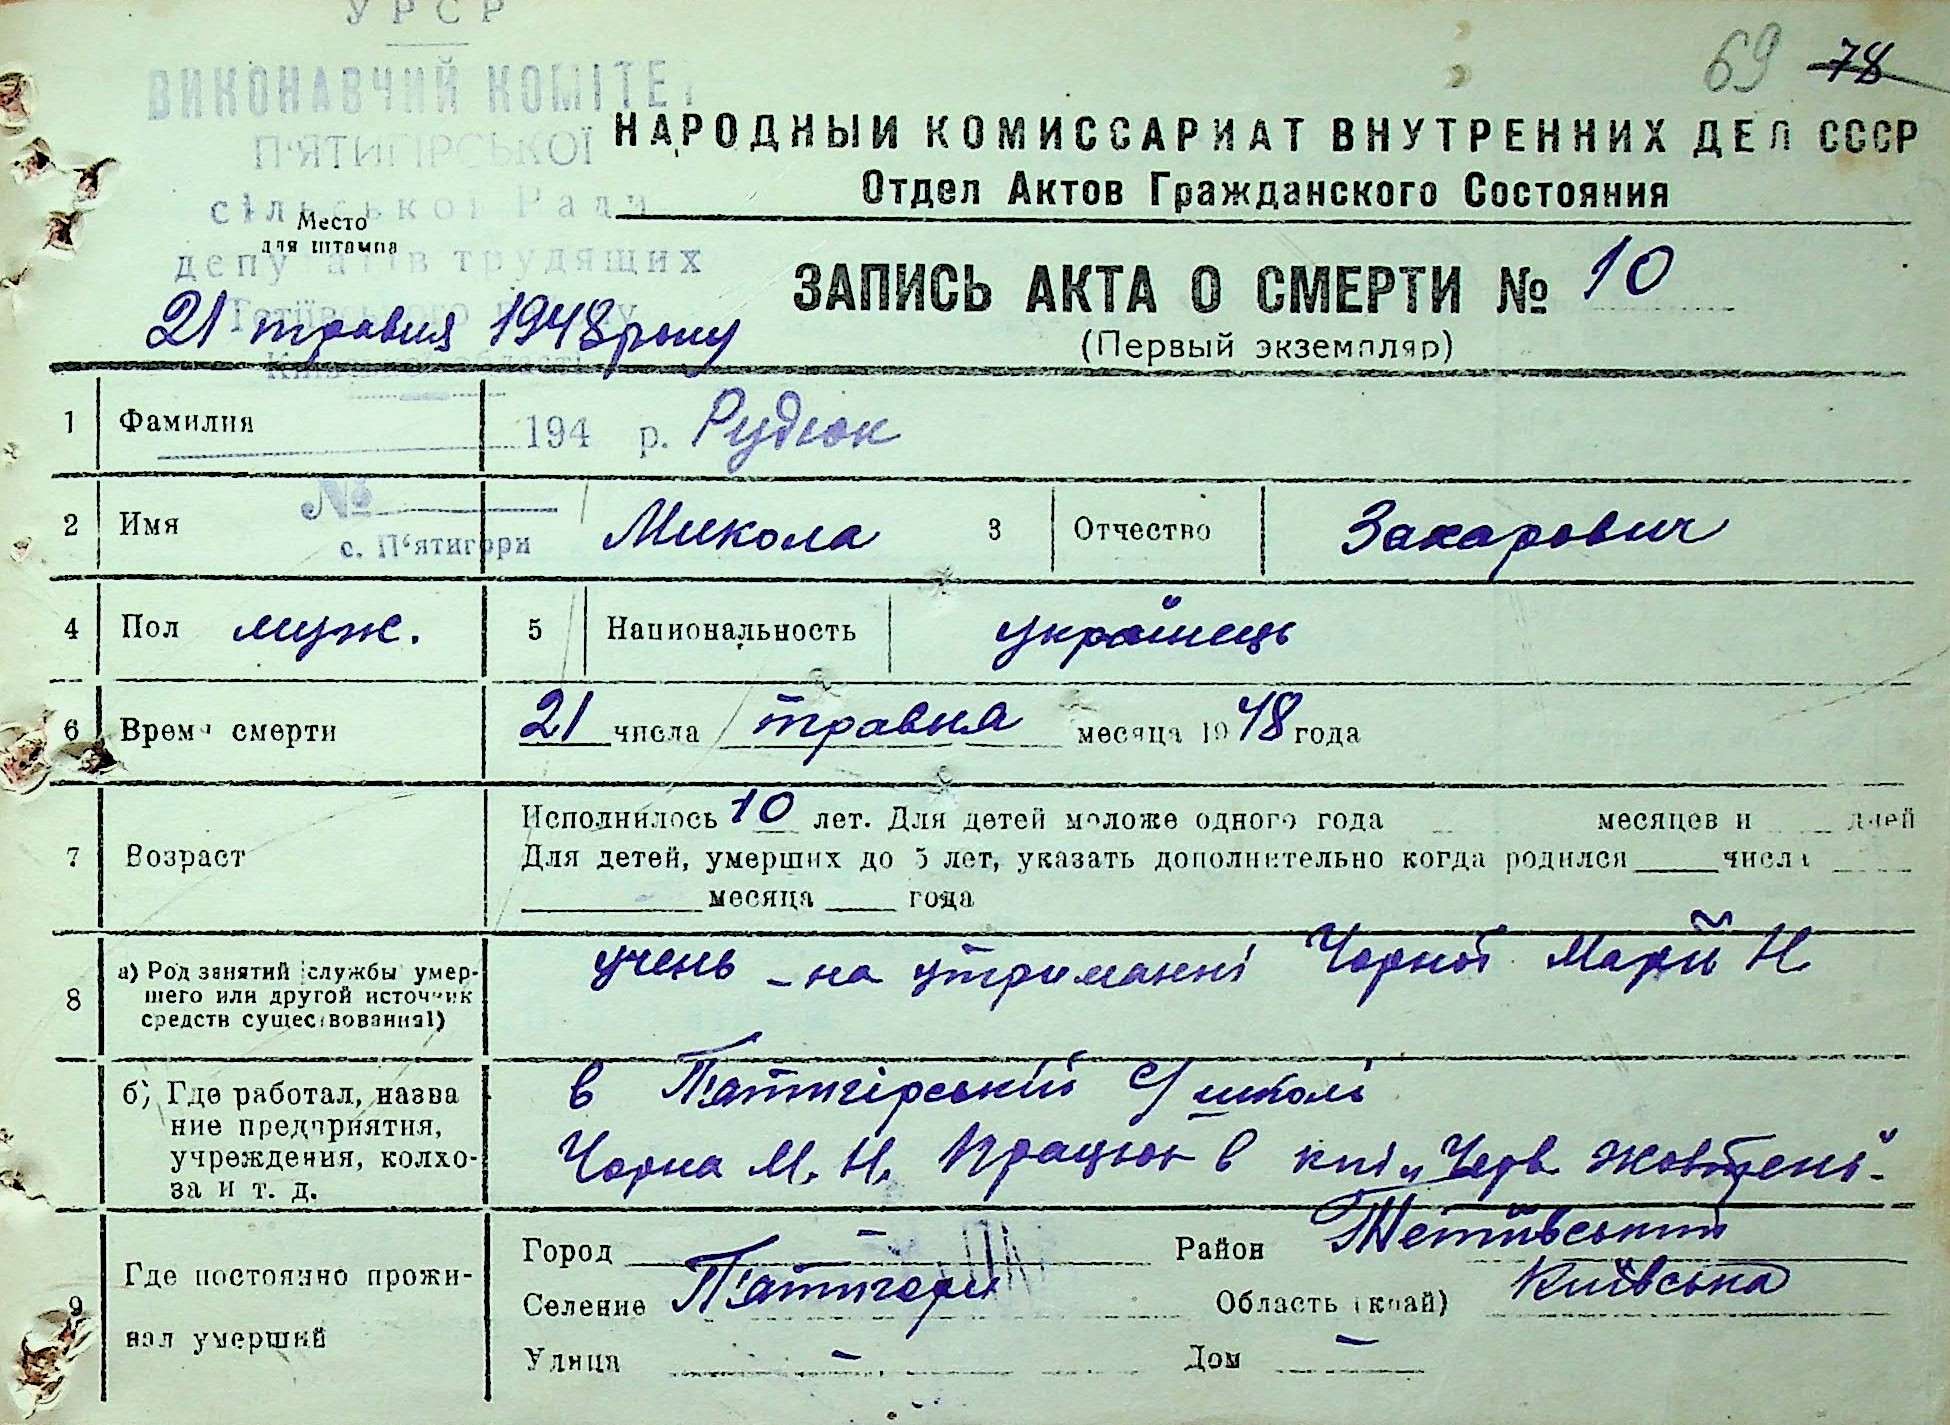 УРСР
69 78
ВИКОНАВЧИЙ КОМІТЕТ
П'ЯТИГІРСЬКОЇ
НАРОДНЫЙ КОМИССАРИАТ ВНУТРЕННИХ ДЕЛ СССР
Отдел Актов Гражданского Состояния
сільської Ради
Место
для штампа
депутатів трудящих
Тетіївського району
ЗАПИСЬ АКТА О СМЕРТИ № 10
21 травня 1948 року
(Первый экземпляр)
Київської області
1 Фамилия 194 р. Рудюк
№
2 Имя Микола 3 Отчество Захарович
с. П'ятигори
4 Пол муж. 5 Национальность українець
6 Время смерти 21 числа травня месяца 1948 года
7 Возраст
Исполнилось 10 лет. Для детей моложе одного года месяцев и дней
Для детей, умерших до 5 лет, указать дополнительно когда родился числа
месяца года
8 а) Род занятий службы умер-
шего или другой источник
средств существования1)
учень - на утриманні Чорної Марії Н.
б) Где работал, назва
ние предприятия,
учреждения, колхо-
за и т. д.
в П'ятигірській с/школі
Чорна М. Н. працює в к-пі „Черв. жовтень"
9 Где постоянно прожи-
вал умерший
Город - Район Тетіївський
Селение П'ятигори Область (край) Київська
Улица - Дом -